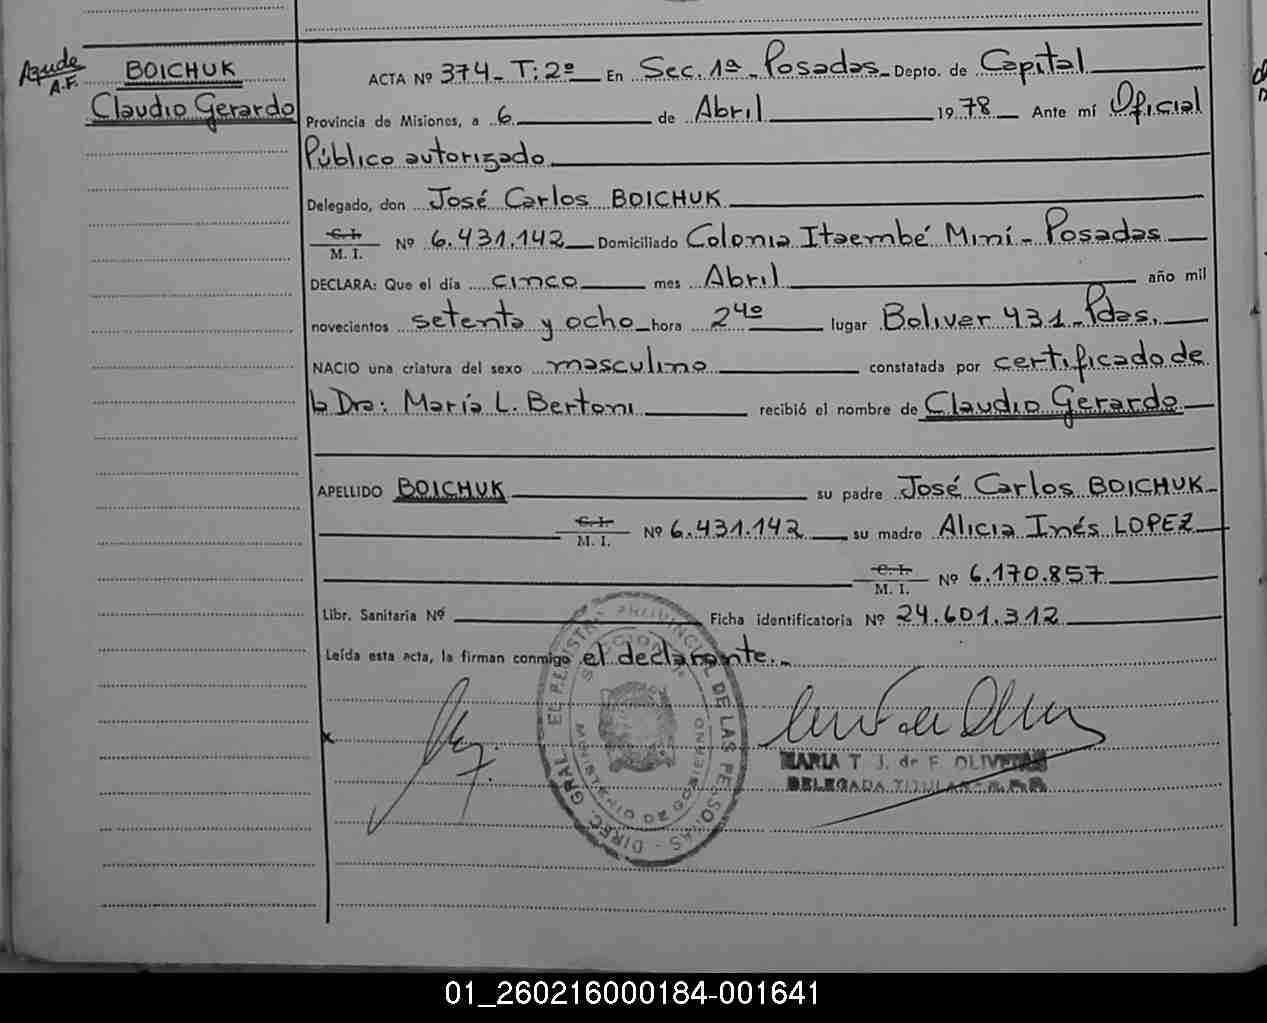 Agude
A.F.
BOICHUK
Claudio Gerardo
ACTA Nº 374- T: 2º En Sec. 1ª - Posadas - Depto. de Capital
Provincia de Misiones, a 6 de Abril 19 78 Ante mí Oficial
Público autorizado
Delegado, don José Carlos BOICHUK
C. I.
M. I. Nº 6.431.142 Domiciliado Colonia Itaembé Miní - Posadas
DECLARA: Que el día cinco mes Abril año mil
novecientos setenta y ocho hora 24º lugar Boliver 431 - Pdas.
NACIO una criatura del sexo masculino constatada por certificado de
la Dra: María L. Bertoni recibió el nombre de Claudio Gerardo
APELLIDO BOICHUK su padre José Carlos BOICHUK
C. I.
M. I. Nº 6.431.142 su madre Alicia Inés LOPEZ
C. I.
M. I. Nº 6.170.857
Libr. Sanitaria Nº Ficha identificatoria Nº 24.601.312
Leída esta acta, la firman conmigo el declarante.-
DIREC. GRAL. DEL REGISTRO PROVINCIAL DE LAS PERSONAS
MINISTERIO DE GOBIERNO
MARIA T. J. de F. OLIVERAS
DELEGADA TITULAR
01_260216000184-001641